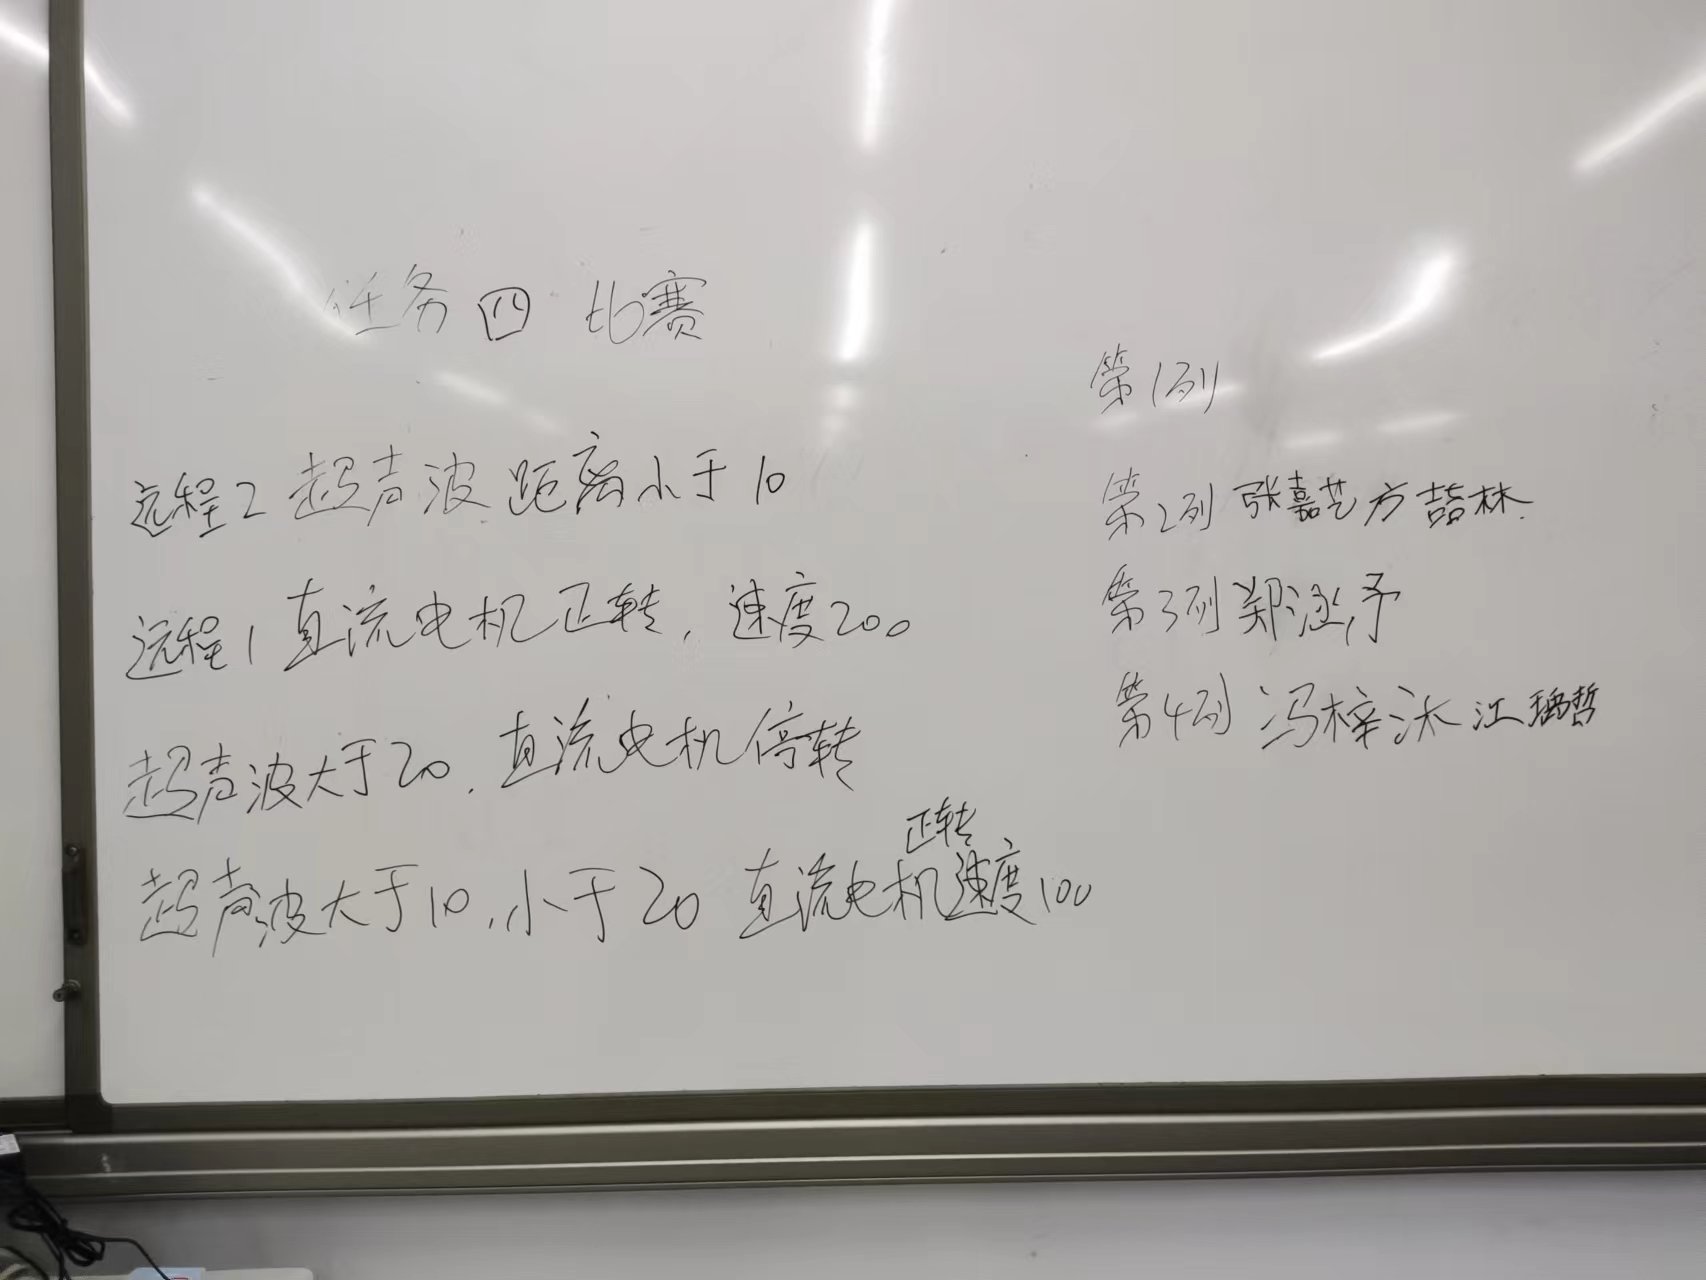 任务四 比赛
远程2 超声波 距离小于10
远程1 直流电机正转，速度200
超声波大于20，直流电机停转
正转
超声波大于10，小于20 直流电机速度100
第1列
第2列 张嘉艺 方喆林
第3列 郑涵予
第4列 冯梓沐 江瑀哲